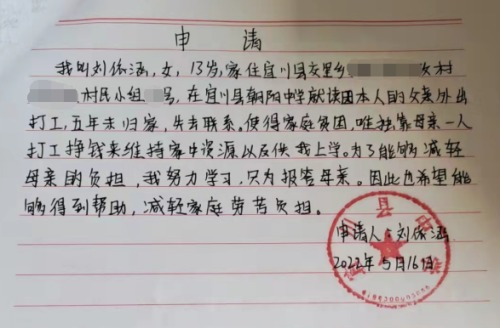 申 请
我叫刘依涵,女,13岁,家住宜川县交里乡 村
村民小组 号,在宜川县朝阳中学就读因本人的父亲外出
打工,五年未归家,失去联系,使得家庭贫困,唯独靠母亲一人
打工挣钱来维持家中资源以及供我上学。为了能够减轻
母亲的负担,我努力学习,只为报答母亲。因此也希望能
够得到帮助,减轻家庭劳苦负担。
申请人:刘依涵
2022年5月16日
县